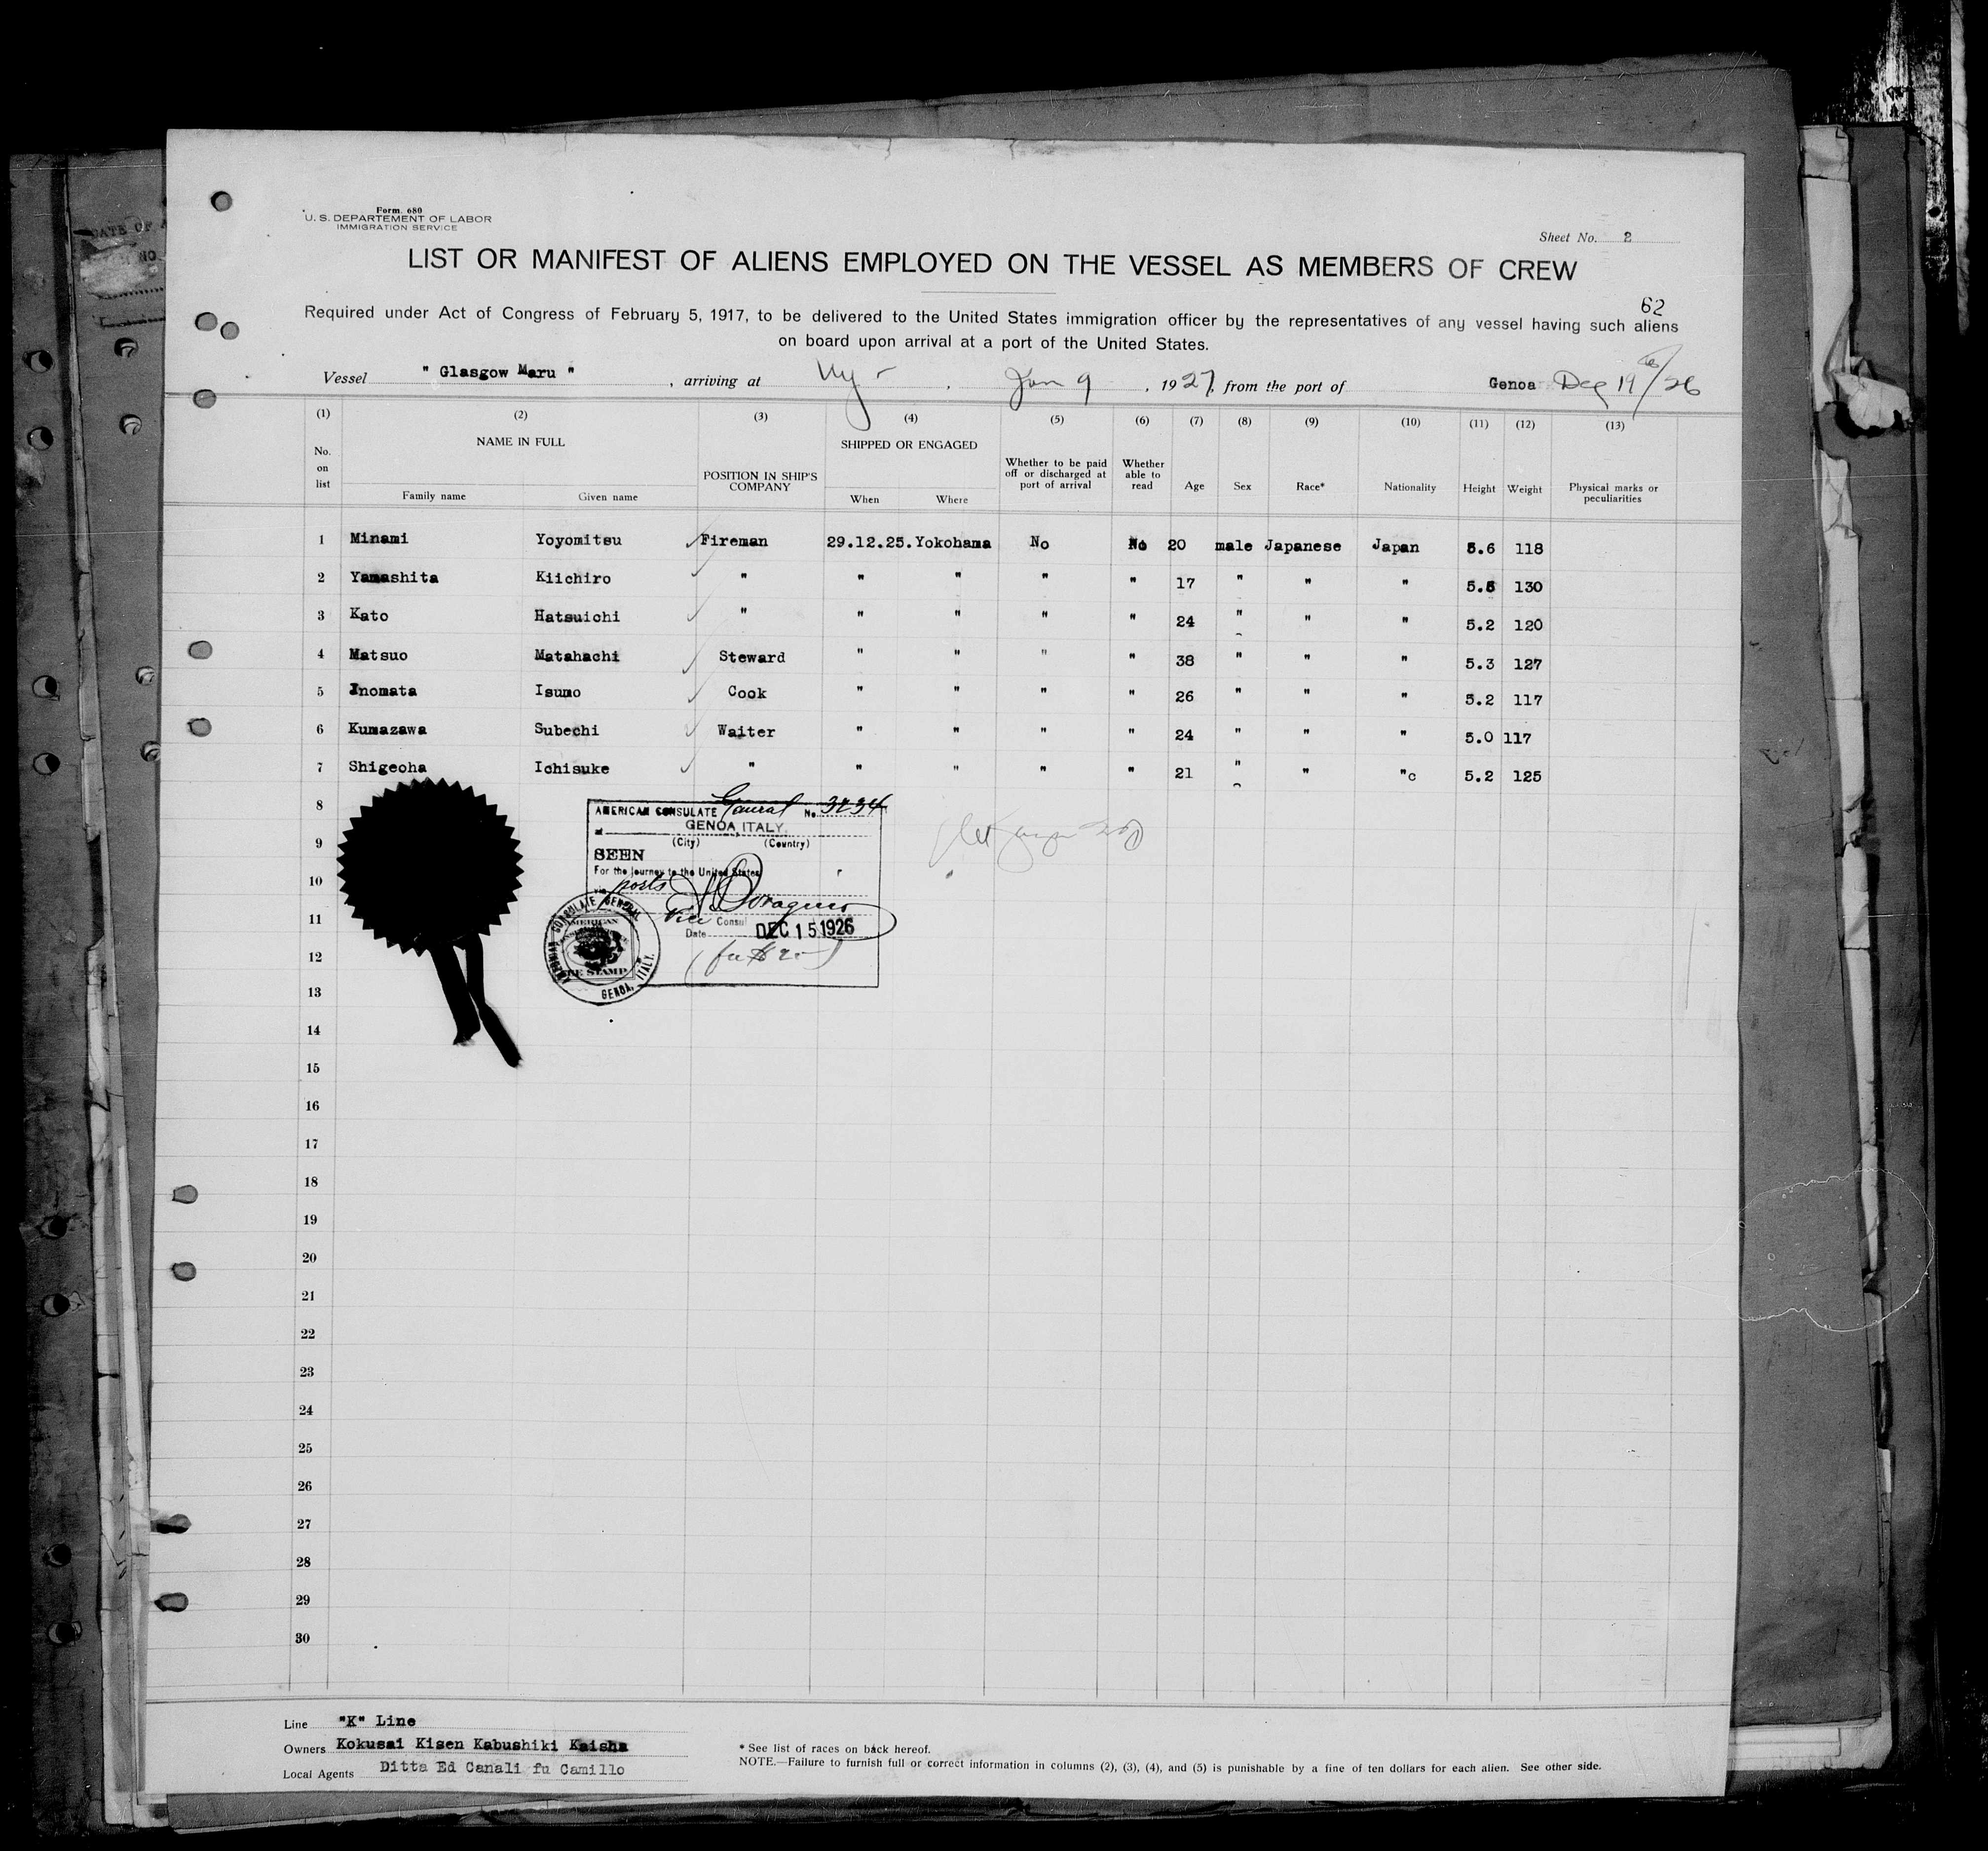 Form. 680
U. S. DEPARTEMENT OF LABOR
IMMIGRATION SERVICE
Sheet No. 2
LIST OR MANIFEST OF ALIENS EMPLOYED ON THE VESSEL AS MEMBERS OF CREW
62
Required under Act of Congress of February 5, 1917, to be delivered to the United States immigration officer by the representatives of any vessel having such aliens
on board upon arrival at a port of the United States.
Vessel " Glasgow Maru " , arriving at Ny - , Jan 9 , 1927, from the port of Genoa Dec 19/26
(1) (2) (3) (4) (5) (6) (7) (8) (9) (10) (11) (12) (13)
No. on list NAME IN FULL Family name Given name POSITION IN SHIP'S COMPANY SHIPPED OR ENGAGED When Where Whether to be paid off or discharged at port of arrival Whether able to read Age Sex Race* Nationality Height Weight Physical marks or peculiarities
1 Minami Yoyomitsu Fireman 29.12.25. Yokohama No No 20 male Japanese Japan 5.6 118
2 Yamashita Kiichiro " " " " " 17 " " " 5.5 130
3 Kato Hatsuichi " " " " " 24 " " " 5.2 120
4 Matsuo Matahachi Steward " " " " 38 " " " 5.3 127
5 Inomata Isumo Cook " " " " 26 " " " 5.2 117
6 Kumazawa Subechi Waiter " " " " 24 " " " 5.0 117
7 Shigeoha Ichisuke " " " " " 21 " " "c 5.2 125
8
9
10
11
12
13
14
15
16
17
18
19
20
21
22
23
24
25
26
27
28
29
30
AMERICAN CONSULATE General No. 3234
at GENOA, ITALY.
(City) (Country)
SEEN
For the journey to the United States
via ports
Vice Consul
Date DEC 15 1926
AMERICAN CONSULATE GENERAL
AMERICAN
FEE STAMP
GENOA, ITALY.
Line "K" Line
Owners Kokusai Kisen Kabushiki Kaisha
Local Agents Ditta Ed Canali fu Camillo
* See list of races on back hereof.
NOTE.—Failure to furnish full or correct information in columns (2), (3), (4), and (5) is punishable by a fine of ten dollars for each alien. See other side.